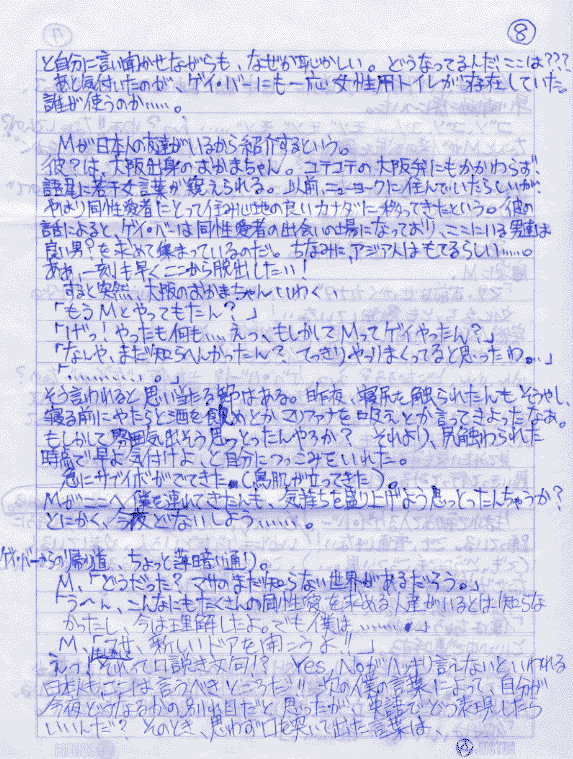 ⑧
と自分に言い聞かせながらも、なぜか恥かしい。どうなってるんだここは???
あと気付いたのが、ゲイ・バーにも一応女性用トイレが存在していた。
誰が使うのか……。
Mが日本人の友達がいるから紹介するという。
彼?は、大阪出身のおかまちゃん。コテコテの大阪弁にもかかわらず、
語尾に若干女言葉が窺えられる。以前、ニューヨークに住んでいたらしいが、
やはり同性愛者にとって住み心地の良いカナダに移ってきたという。彼の
話によると、ゲイ・バーは同性愛者の出会いの場になっており、ここにいる男達は
良い男?を求めて集まっているのだ。ちなみに、アジア人はもてるらしい……。
ああ、一刻も早くここから脱出したい!
すると突然、大阪のおかまちゃんいわく
「もうMとやってもたん?」
「げっ!やったも何も…えっ、もしかしてMってゲイやったん?」
「なんや、まだ知らへんかったん?、てっきりやりまくってると思ったわ…」
「…………。」
そう言われると思い当たる節はある。昨夜、寝尻を触られたんもそうやし、
寝る前にやたらと酒を飲めとかマリファナを吸えとか言ってきよったなあ。
もしかして雰囲気出そう思っとったんやろか? それより、尻触わられた
時点で早よ気付けよ、と自分につっこみをいれた。
急にサツイボがでてきた。(鳥肌が立ってきた)。
Mがここへ僕を連れてきたんも、気持ちを盛り上げよう思っとったんちゃうか?
とにかく、今夜どないしよう……。
ゲイ・バーからの帰り道、ちょっと薄暗い通り。
M、「どうだった?マサのまだ知らない世界があるだろう。」
「うーん、こんなにもたくさんの同性愛を求める人達がいるとは知らな
かったし、今は理解したよ。でも僕は………。」
M、「マサ、新しいドアを開こうよ!!」
えっ!それって口説き文句!? Yes,Noがハッキリ言えないといわれる
日本人もここは言うべきところだ!!次の僕の言葉によって、自分が
今夜どうなるかの別れ目だと思ったが、英語でどう表現したら
いいんだ? そのとき、思わず口を突いて出た言葉は、